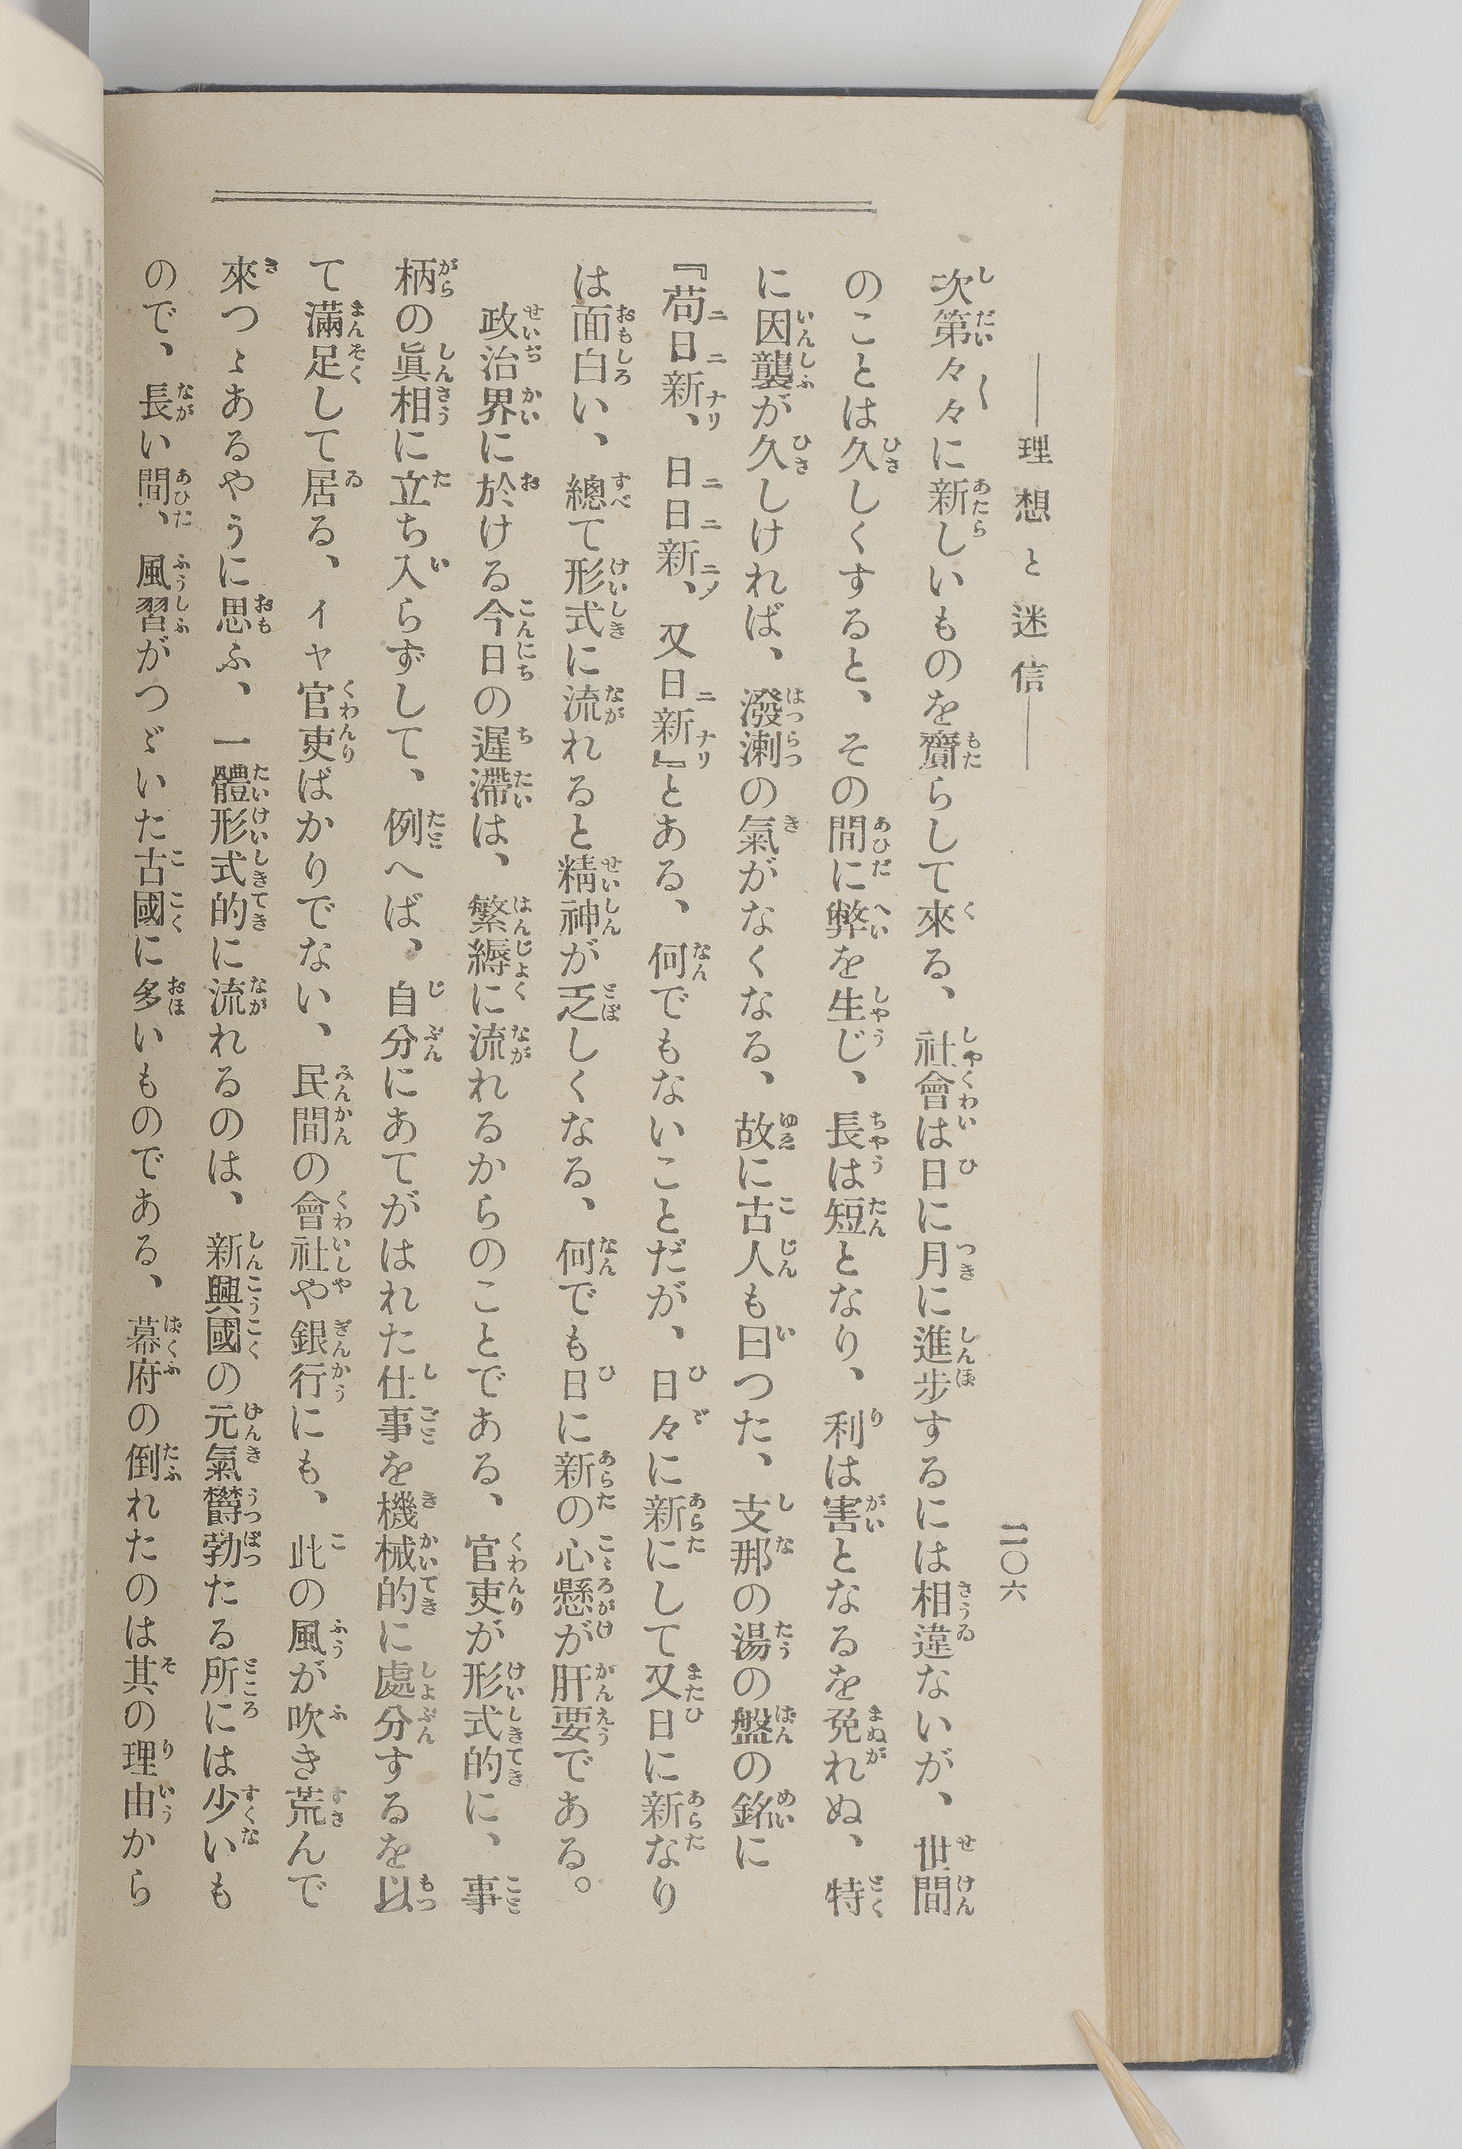 ―理想と迷信―
二〇六
次第々々に新しいものを齎らして來る、社會は日に月に進步するには相違ないが、世間
のことは久しくすると、その間に弊を生じ、長は短となり、利は害となるを免れぬ、特
に因襲が久しければ、潑溂の氣がなくなる、故に古人も曰つた、支那の湯の盤の銘に
『苟日新、日日新、又日新』とある、何でもないことだが、日々に新にして又日に新なり
は面白い、總て形式に流れると精神が乏しくなる、何でも日に新の心懸が肝要である。
政治界に於ける今日の遲滯は、繁縟に流れるからのことである、官吏が形式的に、事
柄の眞相に立ち入らずして、例へば、自分にあてがはれた仕事を機械的に處分するを以
て滿足して居る、イヤ官吏ばかりでない、民間の會社や銀行にも、此の風が吹き荒んで
來つゝあるやうに思ふ、一體形式的に流れるのは、新興國の元氣欝勃たる所には少いも
ので、長い間、風習がつゞいた古國に多いものである、幕府の倒れたのは其の理由から